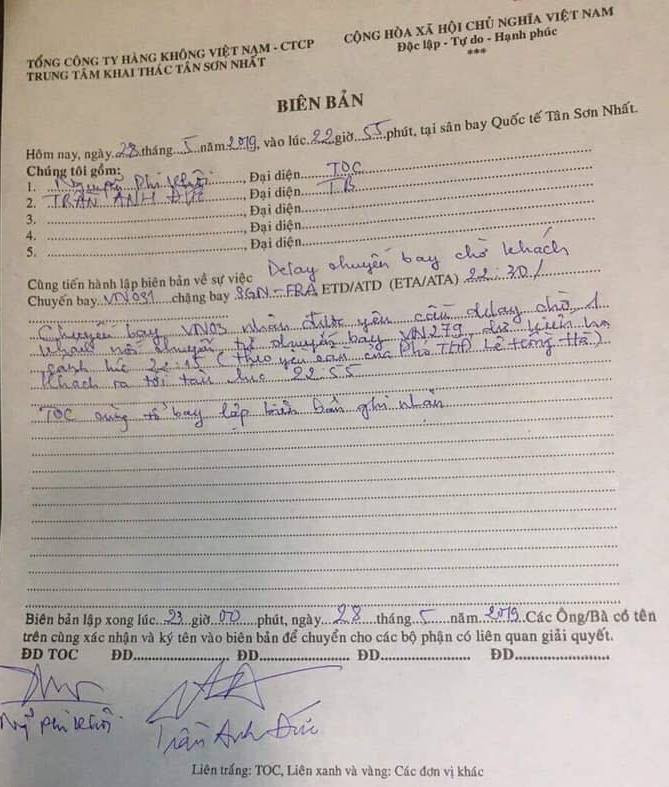 TỔNG CÔNG TY HÀNG KHÔNG VIỆT NAM - CTCP
TRUNG TÂM KHAI THÁC TÂN SƠN NHẤT
CỘNG HÒA XÃ HỘI CHỦ NGHĨA VIỆT NAM
Độc lập - Tự do - Hạnh phúc
***
BIÊN BẢN
Hôm nay, ngày 28 tháng 5 năm 2019, vào lúc 22 giờ 55 phút, tại sân bay Quốc tế Tân Sơn Nhất.
Chúng tôi gồm:
1. Nguyễn Phi Khôi, Đại diện TOC
2. TRẦN ANH ĐỨC, Đại diện TB
3. , Đại diện
4. , Đại diện
5. , Đại diện
Cùng tiến hành lập biên bản về sự việc Delay chuyến bay chờ khách
Chuyến bay VN031 chặng bay SGN-FRA ETD/ATD (ETA/ATA) 22:30/
Chuyến bay VN03 nhận được yêu cầu delay chờ 1
khách nối chuyến từ chuyến bay VN279 dự kiến hạ
cánh lúc 22:15 (theo yêu cầu của Phó Lê Hồng Hà)
Khách ra tới tàu lúc 22:55
TOC cùng tổ bay lập biên bản ghi nhận
Biên bản lập xong lúc 23 giờ 00 phút, ngày 28 tháng 5 năm 2019. Các Ông/Bà có tên
trên cùng xác nhận và ký tên vào biên bản để chuyển cho các bộ phận có liên quan giải quyết.
ĐD TOC ĐD ĐD ĐD ĐD
Ng Phi Khôi
Trần Anh Đức
Liên trắng: TOC, Liên xanh và vàng: Các đơn vị khác